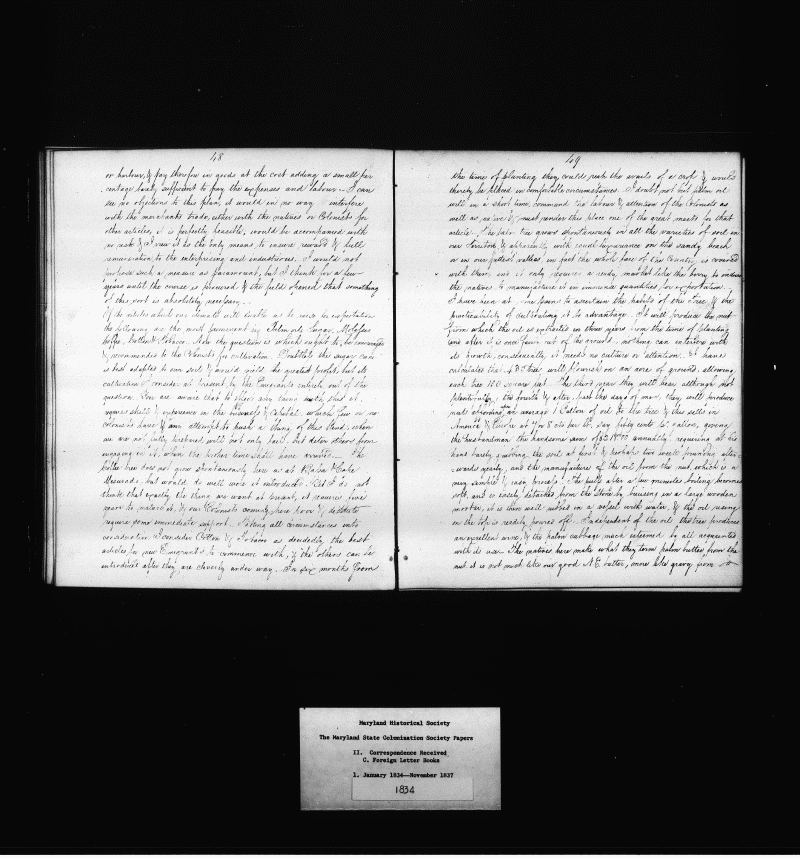 48
or harbour, & pay therefor in goods at the cost adding a small per
centage barely sufficient to pay the expenses and labour — I can
see no objections to this plan, it would in no way interfere
with the merchants trade, either with the natives or Colonists for
other articles, it is perfectly feasible, would be accompanied with
no risk & I view it as the only means to ensure reward & full
remuneration to the enterprising and industrious. I would not
propose such a measure as paramount, but I think for a few
years until the course is pursued & the field opened that something
of this sort is absolutely necessary.
Of the articles which our climate will enable us to raise for exportation
the following are the most prominent viz Palm oil, Sugar, Molasses
Coffee, Cotton & Tobacco. Now the question is which ought to be
& recommended to the Colonists for cultivation. Doubtless the sugar cane
is best adapted to our soil & would yield the greatest profit, but its
cultivation I consider at present by the Emigrants entirely out of the
question. You are aware that to effect any thing with that it
requires skill & experience in the & Capital, which few or no
colonists have & an attempt to push a thing of this kind, when
we are not fully prepared will not only fail, but deter others from
engaging in it, when the proper time shall have arrived. — The
Coffee tree does not grow spontaneously here as at Bassa & Cape
Mesurado, but would do well were it introduced. But I do not
think that exactly the thing we want at present, it requires five
years to mature it, & our Colonists coming here poor & destitute
require some immediate support. Taking all circumstances into
consideration I consider Cotton & Tobacco as decidedly the best
articles for new Emigrants to commence with, & the others can be
introduced after they are cleverly under way. In six months from
49
the time of planting they could reap the avails of a crop & would
thereby be placed in comfortable circumstances. I doubt not but palm oil
will in a short time, command the labour & attention of the Colonists as
well as natives & must render this place one of the great marts for that
article. The palm tree grows spontaneously in all the varieties of soil in
our Territory & apparently with equal luxuriance on the sandy beach
or in our fertile vallies, in fact the whole face of the Country is covered
with them, and it only requires a ready market like this to induce
the natives to manufacture it in immense quantities for exportation.
I have been at some pains to ascertain the habits of the Tree, & the
practicability of cultivating it to advantage. It will produce the nut
from which the oil is extracted in three years from the time of planting
and after it is once fairly out of the ground, nothing can interfere with
its growth, consequently it needs no culture or attention. I have
calculated that trees will flourish on an acre of ground, allowing
each tree 100 square feet. The third year they will bear although not
plentifully, the fourth & after, past the days of man, they will produce
nuts affording on an average 1 Gallon of oil to the tree & this sells in
America & Europe at 7 or 8 cts per lb, say fifty cents per gallon, giving
the husbandman the handsome sum of annually, requiring at his
hand barely grubbing the soil at first & perhaps two weeks pruning after-
wards yearly, and the manufacture of the oil from the nut, which is a
very simple & easy process. The pulp after a few minutes boiling becomes
soft, and is easily detached from the stone by bruising in a large wooden
mortar, it is then well rubbed in a vessel with water, & the oil rising
on the top is readily poured off. Independent of the oil the tree produces
an excellent wine, & the palm cabbage much esteemed by all acquainted
with its use. The natives here make what they term palm butter from the
nut it is not much like our good N.E. butter, more like gravy from
Maryland Historical Society
The Maryland State Colonization Society Papers
II. Correspondence Received
C. Foreign Letter Books
1. January 1834--November 1837
1834